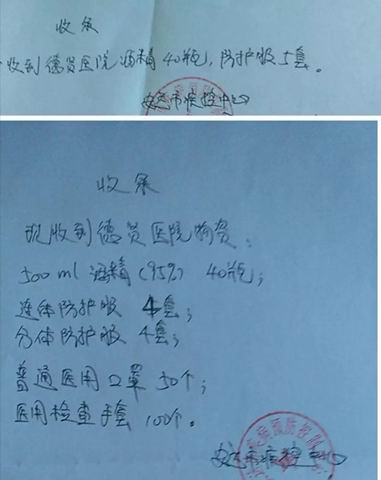 收条
收到德贤医院酒精40瓶，防护服5套。
安达市疾控中心
收条
现收到德贤医院物资：
500ml 酒精（95%） 40瓶；
连体防护服 4套；
分体防护服 4套；
普通医用口罩 50个；
医用检查手套 100个。
安达市疾控中心